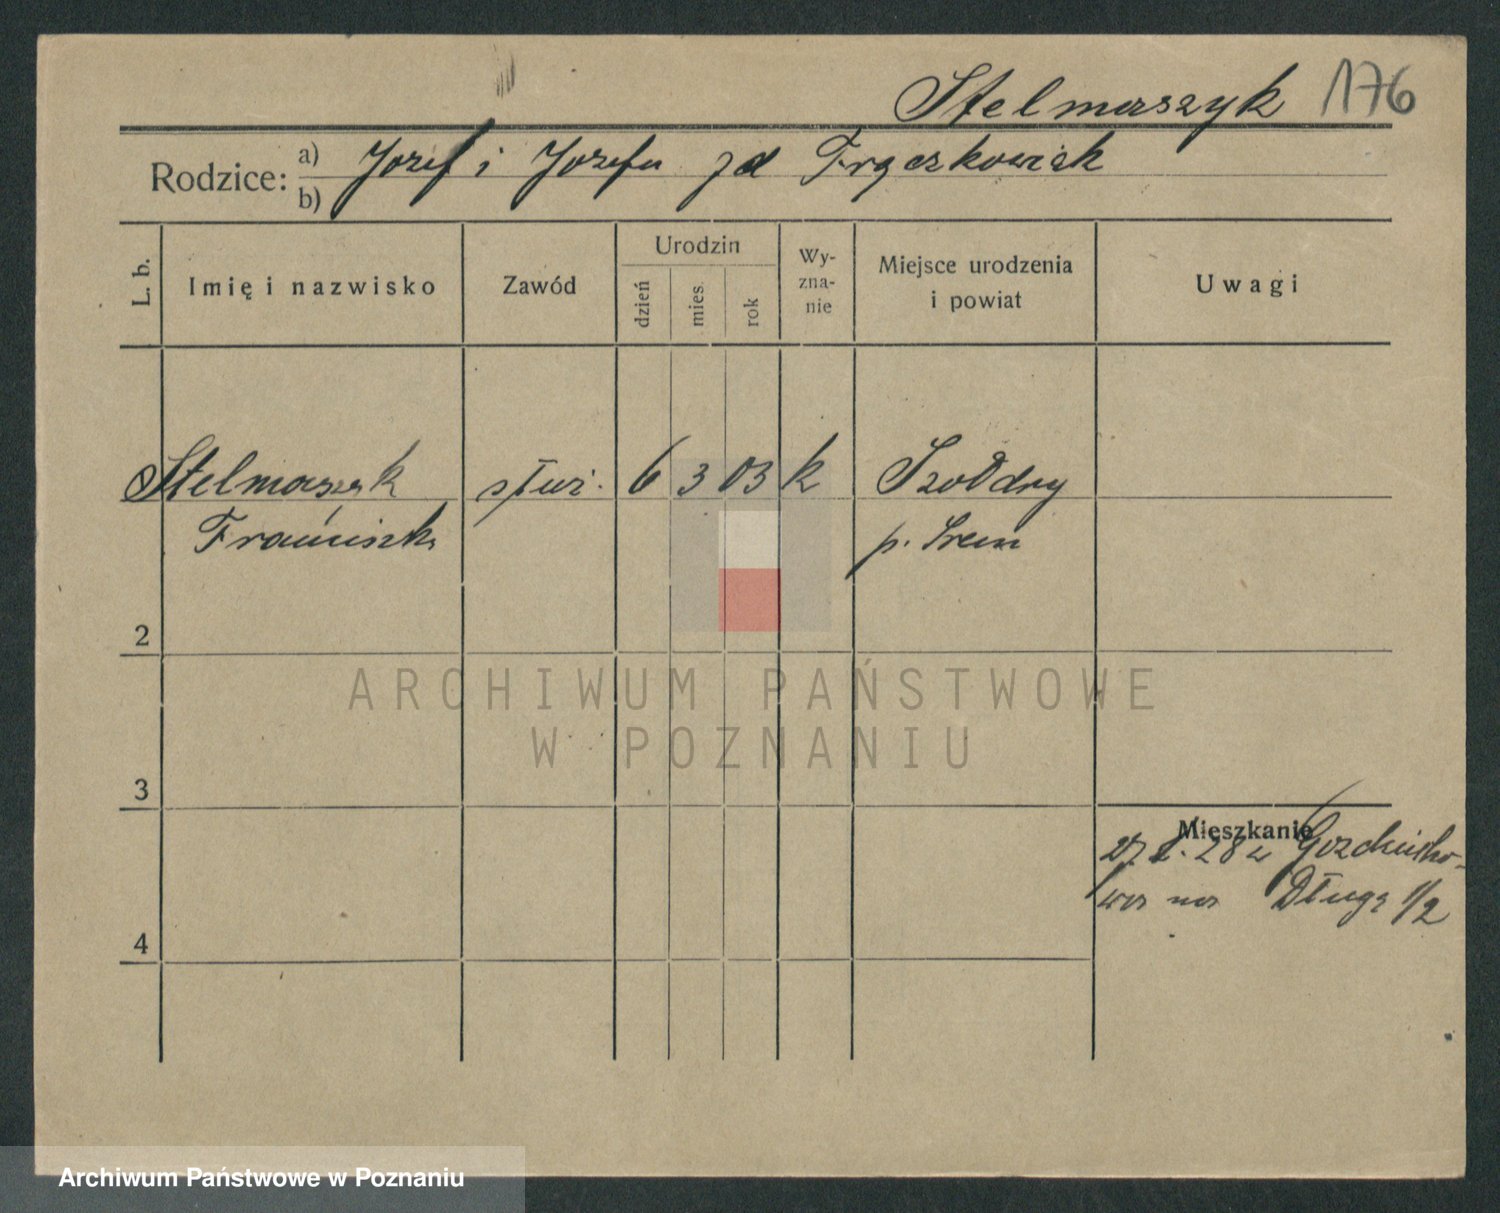 Stelmaszyk 176
Rodzice: a) b) Józef i Józefa zd Frąckowiak
L. b.
Imię i nazwisko
Zawód
Urodzin
dzień
mies.
rok
Wy-
zna-
nie
Miejsce urodzenia
i powiat
Uwagi
Stelmaszyk służ. 6 3 03 k Szołdry
Franciszka p. Srem
2
3
4
Mieszkanie
28 z
na Długą 1/2
ARCHIWUM PAŃSTWOWE
W POZNANIU
Archiwum Państwowe w Poznaniu